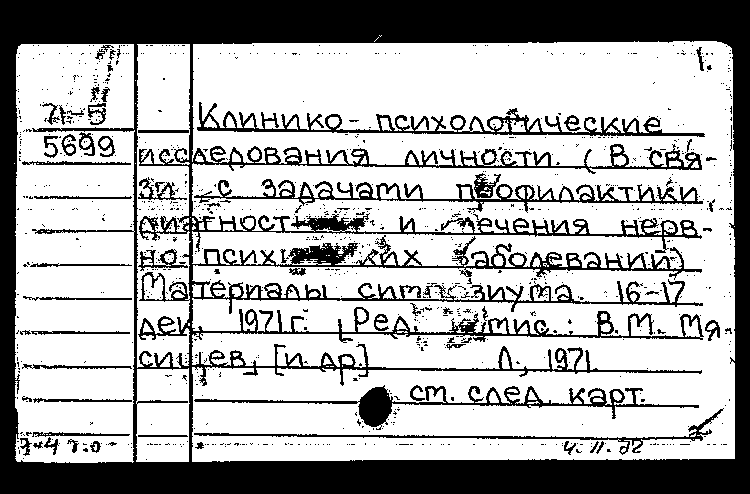 1.
71-5
5699
Клинико-психологические
исследования личности. (В свя-
зи с задачами профилактики,
диагност и лечения нерв-
но-психических заболеваний)
Материалы симпозиума. 16-17
дек. 1971 г. [Ред. : В. М. Мя-
сищев, [и др.] Л., 1971.
ст. след. карт.